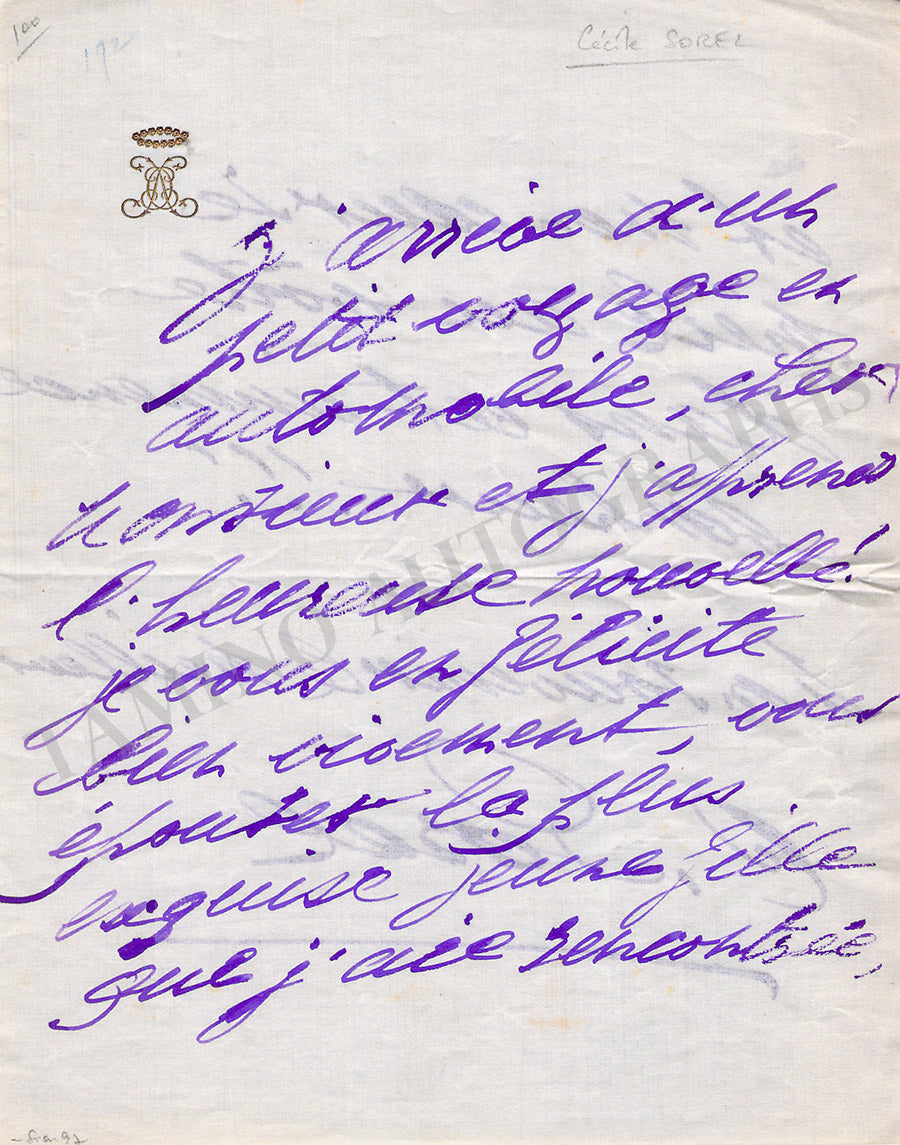 100
192
Cécile SOREL
J'arrive d'un
petit voyage en
automobile, cher
monsieur et j'apprends
l'heureuse nouvelle.
je vous en félicite
bien vivement, vous
épousez la plus
exquise jeune fille
que j'aie rencontrée,
TAMINO AUTOGRAPHS